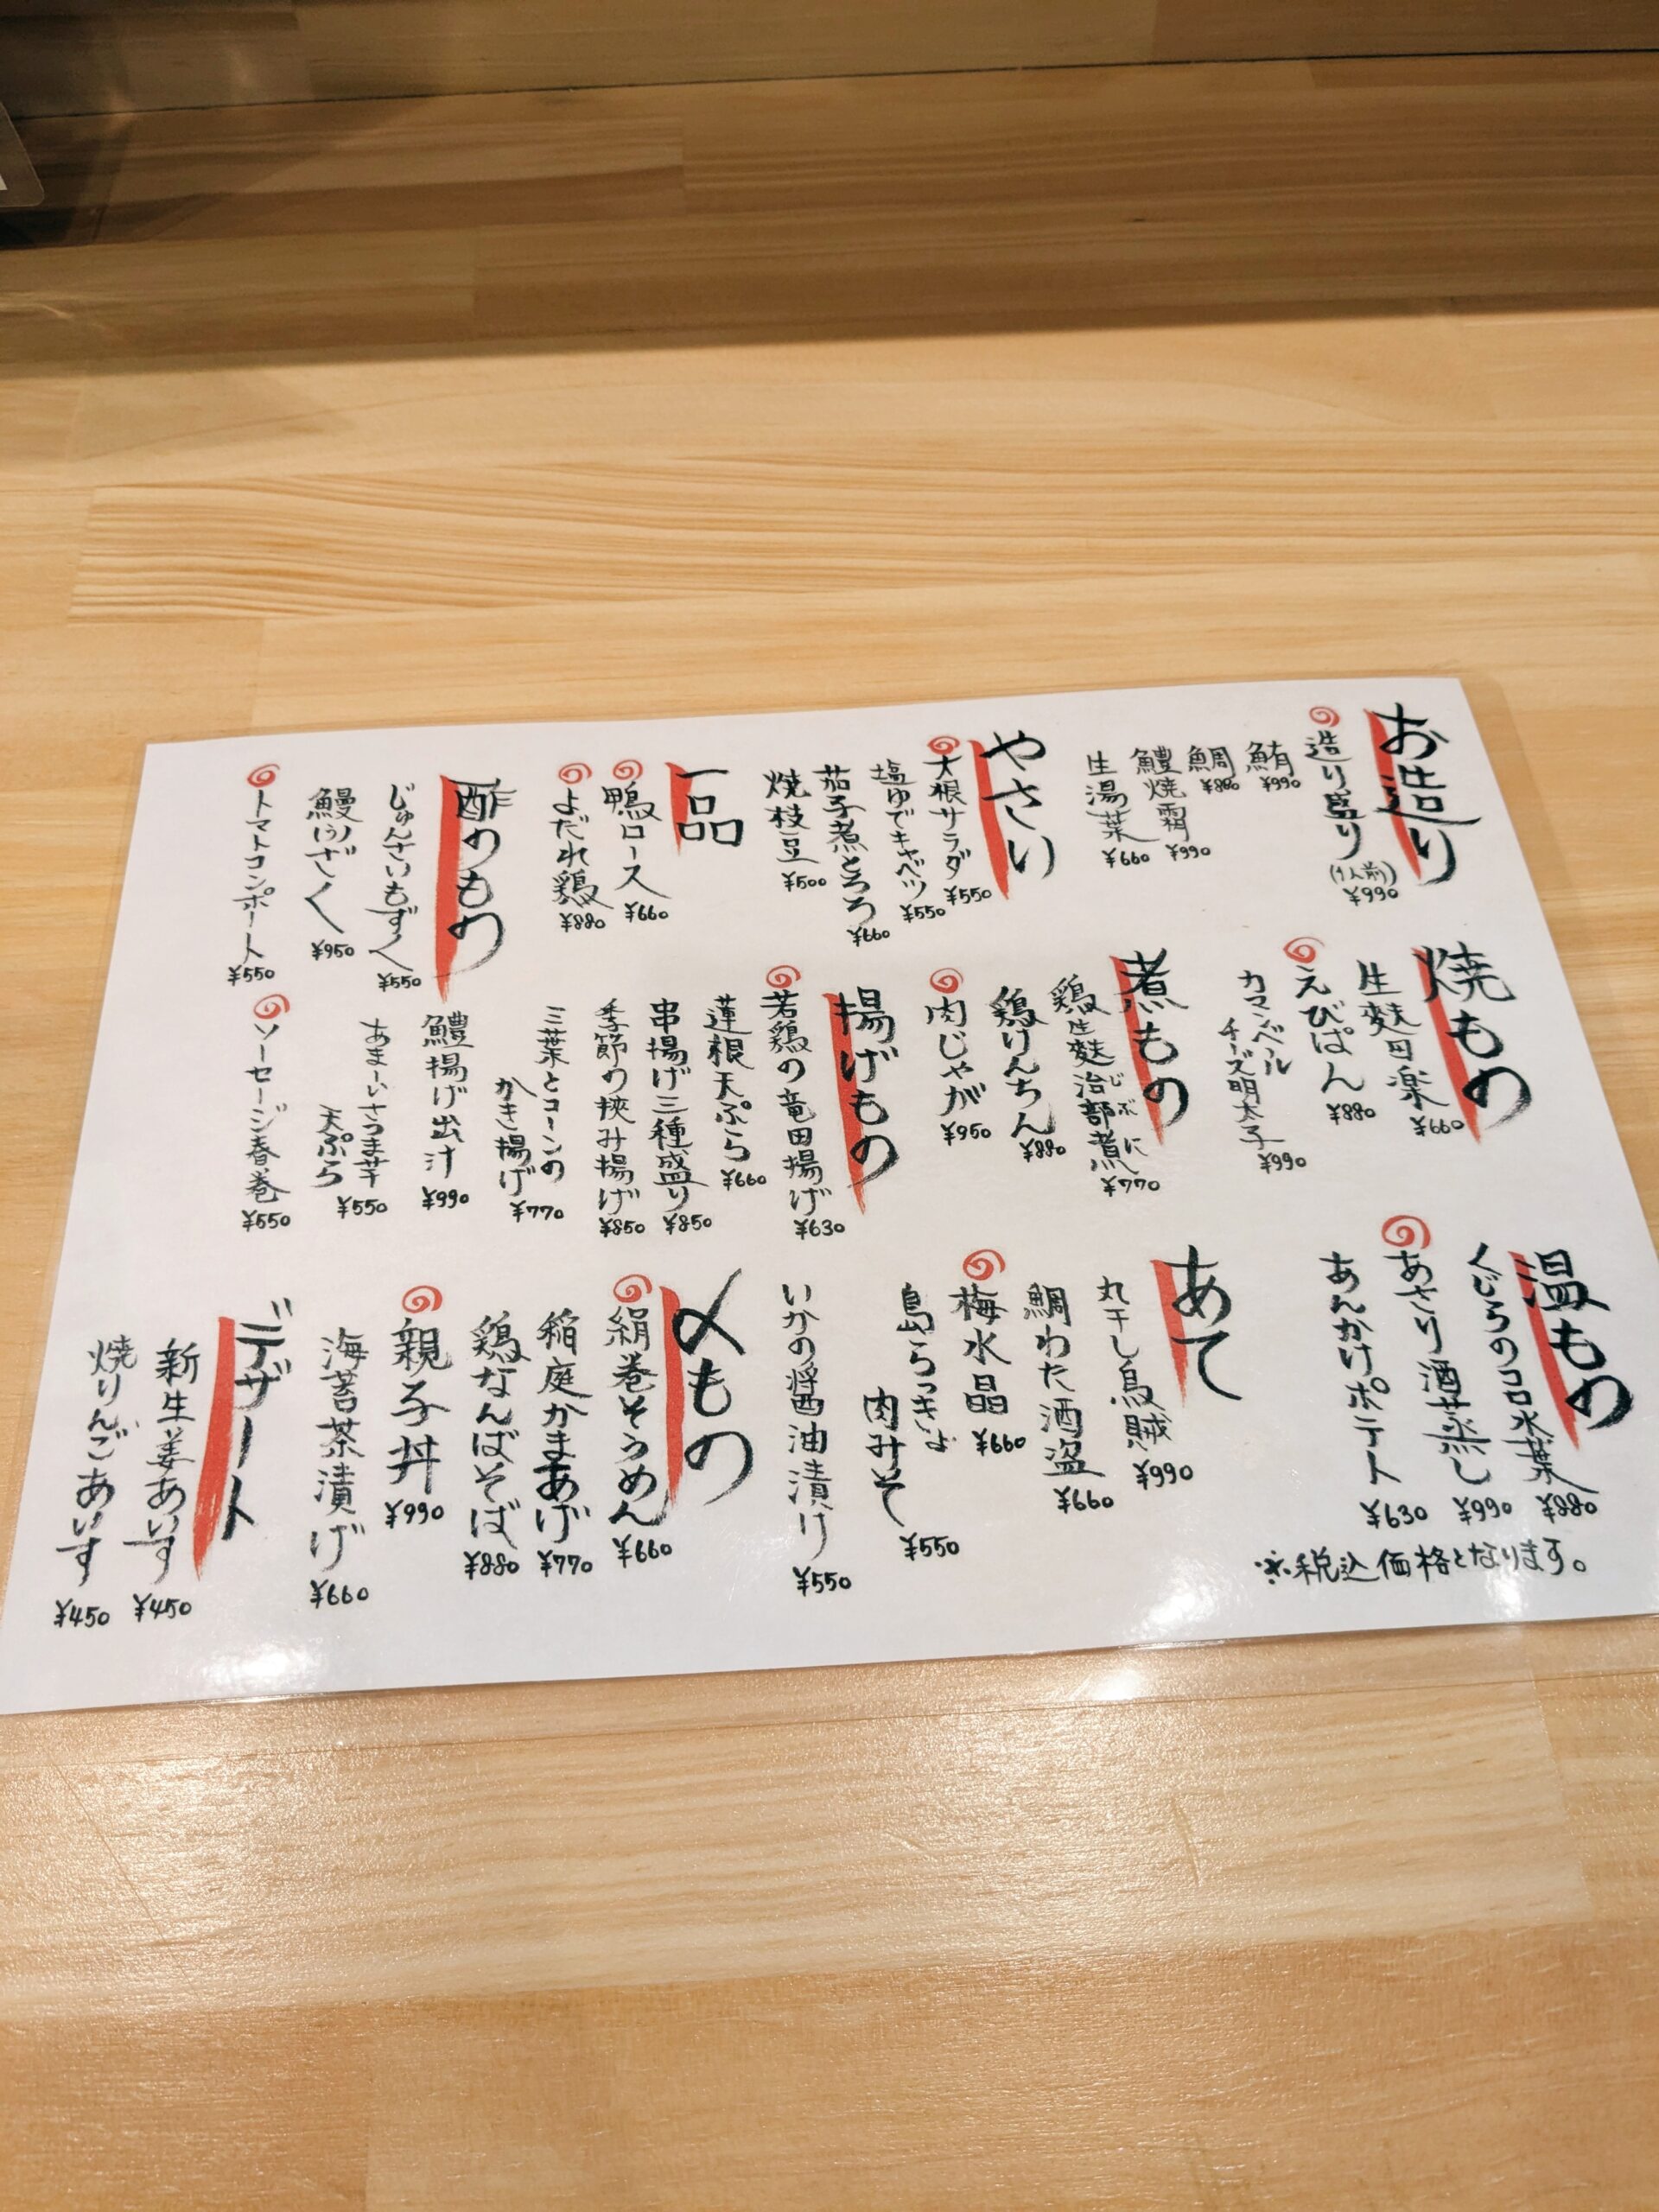 お造り
造り盛り
(1人前)
¥990
鮪
¥990
鯛
¥880
鱧焼霜
¥990
生湯葉
¥660
やさい
大根サラダ
¥550
塩ゆでキャベツ
¥550
茄子煮とろろ
¥660
焼枝豆
¥500
一品
鴨ロース
¥660
よだれ鶏
¥880
酢のもの
じゅんさいもずく
¥550
鰻(う)ざく
¥950
トマトコンポート
¥550
焼もの
生麩田楽
¥660
えびぱん
¥880
カマンベール
チーズ明太子
¥990
煮もの
鶏生麩治部煮
じぶに
¥770
鶏けんちん
¥880
肉じゃが
¥950
揚げもの
若鶏の竜田揚げ
¥630
蓮根天ぷら
¥660
串揚げ三種盛り
¥850
季節の挟み揚げ
¥850
三葉とコーンの
かき揚げ
¥770
鱧揚げ出汁
¥990
あまーいさつま芋
天ぷら
¥550
ソーセージ春巻
¥550
温もの
くじらのコロ氷葉
¥880
あさり酒蒸し
¥990
あんかけポテト
¥630
あて
丸干し烏賊
¥990
鯛わた酒盗
¥660
梅水晶
¥660
島らっきょ
肉みそ
¥550
いかの醤油漬け
¥550
〆もの
絹巻そうめん
¥660
稲庭かまあげ
¥770
鶏なんばそば
¥880
親子丼
¥990
海苔茶漬け
¥660
デザート
新生姜あいす
¥450
焼りんごあいす
¥450
※税込価格となります。